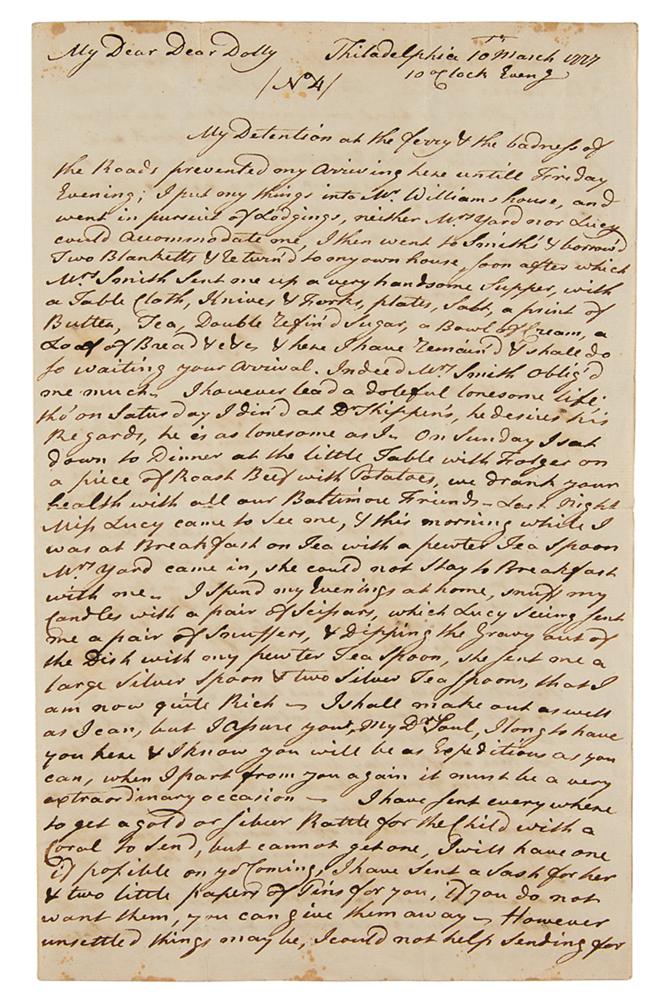 My Dear Dear Dolly Philadelphia 10th March 1777
/No 4/ 10 oClock Eveng
My Detention at the ferry & the badness of
the Roads prevented my Arriving here untill Friday
Evening; I put my things into Mr. Williams house, and
went in pursuit of Lodgings, neither Mrs. Yard nor Lucy
could Accommodate me, I then went to Smith's & borrow'd
Two Blanketts & Return'd to my own house soon after which
Mrs. Smith Sent me up a very handsome Supper, with
a Table Cloth, Knives & Forks, plates, Salt, a print of
Butter, Tea, Double refin'd Sugar, a Bowl of Cream, a
Loaf of Bread &c &c & here I have remain'd & shall do
so waiting your Arrival. Indeed Mrs. Smith Oblig'd
me much. I however lead a doleful lonesome life;
tho' on Saturday I din'd at Dr Shippen's, he desires his
Regards, he is as lonesome as I. On Sunday I sat
down to Dinner at the little Table with Folger on
a piece of Roast Beef with Potatoes, we drank your
health with all our Baltimore Friends — Last Night
Miss Lucy came to See me, & this morning while I
was at Breakfast on Tea with a pewter Tea Spoon
Mrs. Yard came in, she could not Stay to Breakfast
with me — I Spend my Evenings at home, snuff my
Candles with a pair of Scissars, which Lucy Seeing Sent
me a pair of Snuffers, & dipping the Gravy out of
the Dish with my pewter Tea Spoon, she Sent me a
large Silver Spoon & two Silver Tea Spoons, that I
am now quite Rich — I shall make out as well
as I can, but I Assure you, my Dr Soul, I long to have
you here & I know you will be as Expeditious as you
can, when I part from you again it must be a very
extraordinary occasion — I have Sent every where
to get a gold or silver Rattle for the Child with a
Coral to Send, but cannot get one, I will have one
if possible on yr Coming, I have Sent a Sash for her
& two little papers of Pins for you, if you do not
want them, you can give them away — However
unsettled things may be, I could not help Sending for